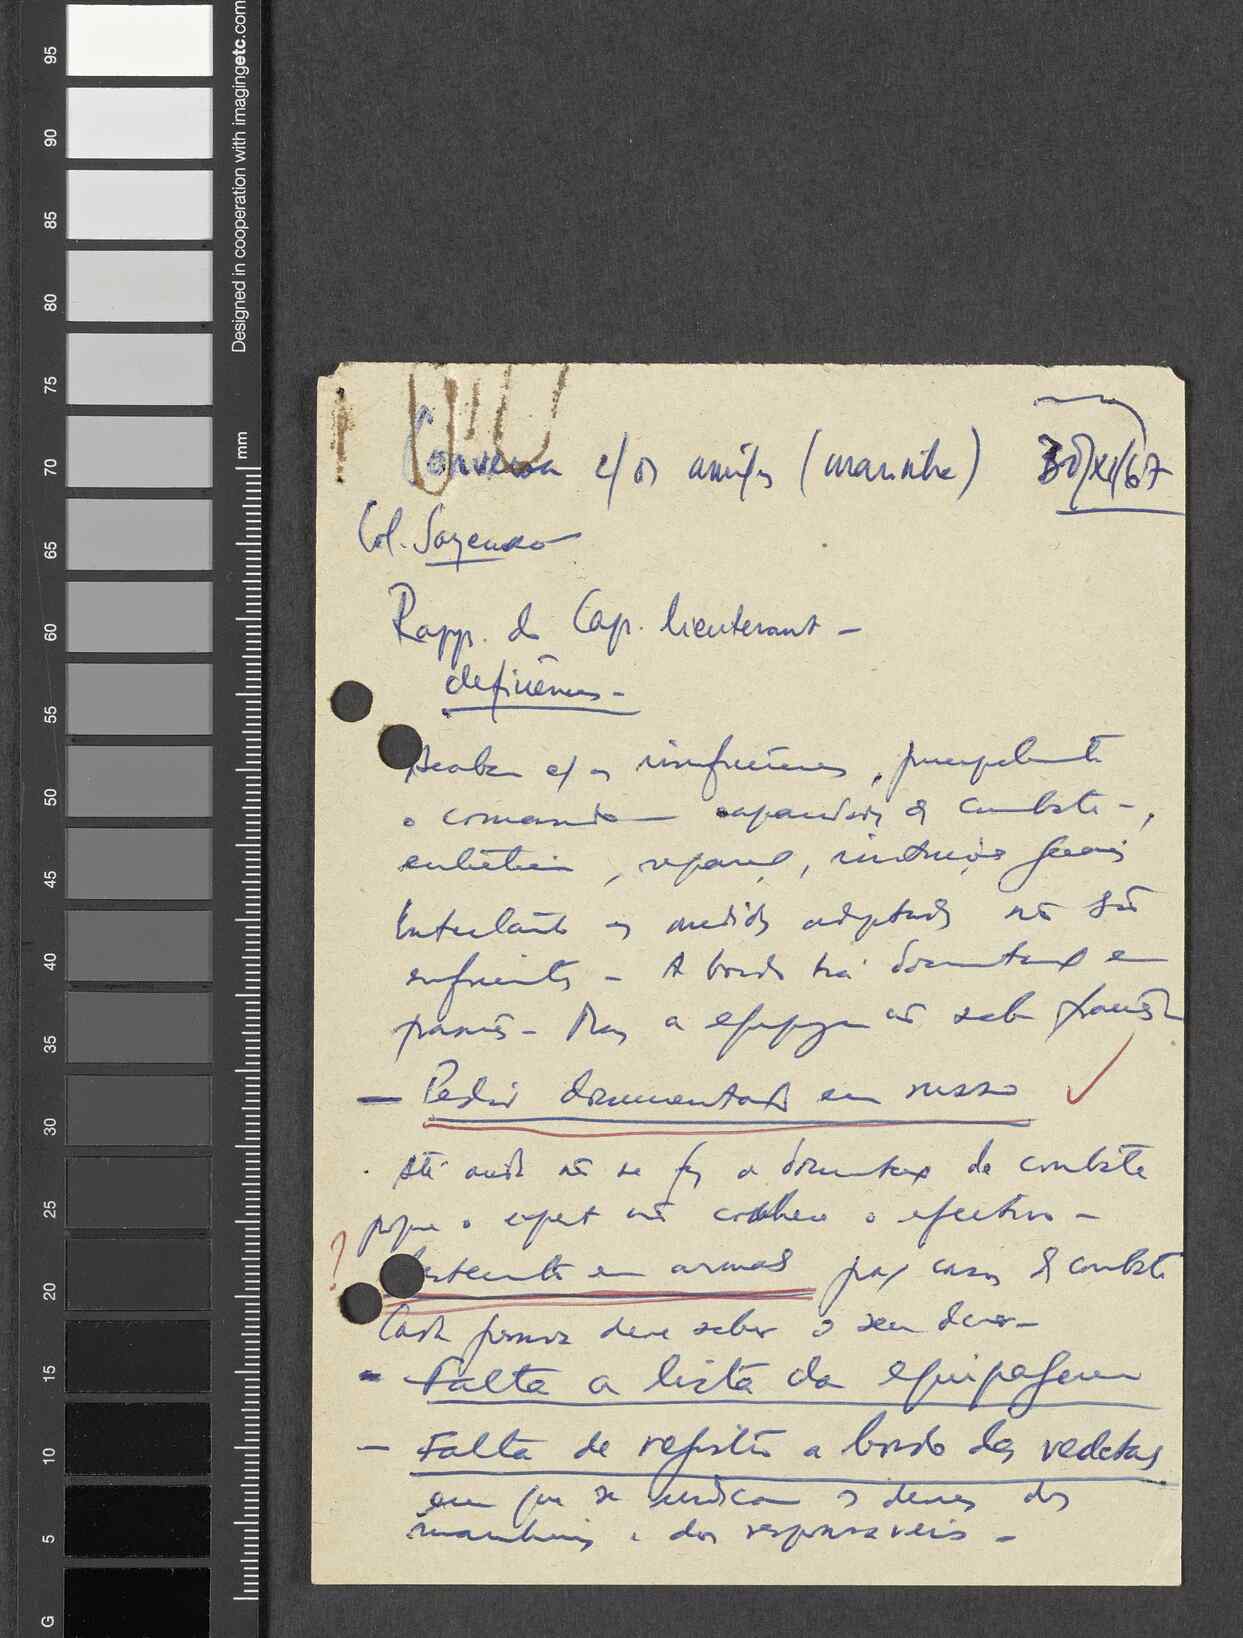 95
90
85
80
75
70
65
60
55
50
45
40
35
30
25
20
15
10
5
G
Designed in cooperation with imagingetc.com
mm
Conversa c/ os amigos (marinha) 30/XI/67
Col.
Rapp. do Cap. lieutenant -
deficiências -
Acabar c/ as insuficiências, principalmente
o comando capacidade de combate -,
instrução gerais
Entretanto as medidas adoptadas não são
suficientes - A bordo há documentação em
francês - Mas a equipagem não sabe francês
- Pedir documentação em russo ✓
. Até ainda não se fez a documentação de combate
porque o expert não conhece o efectivo -
? em armas para casos de combate
Cada pessoa deve saber o seu dever -
- Falta a lista da equipagem
- Falta de registo a bordo das vedetas
em que se indicam os deveres dos
marinheiros e dos responsáveis -